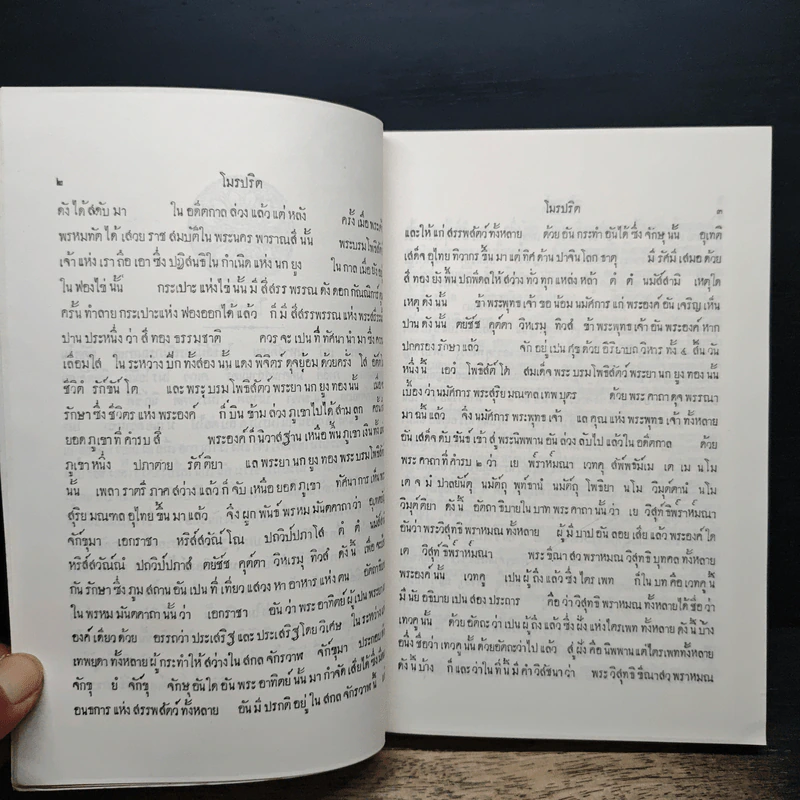 ๒ โมรปริต
ดังได้สดับมา ในอดีตกาลล่วงแล้วแต่หลัง ครั้งเมื่อพระเจ้า
พรหมทัตได้เสวยราชสมบัติในพระนครพาราณสีนั้น พระบรมโพธิสัตว์
เจ้าแห่งเราถือเอาซึ่งปฏิสนธิในกำเนิดแห่งนกยูง ในกาลเมื่อยังอยู่
ในฟองไข่นั้น กระเปาะแห่งไข่นั้นมีสีสรรพรรณดังดอกกัณณิการ์ตูม
ครั้นทำลายกระเปาะแห่งฟองออกได้แล้ว ก็มีสีสรรพรรณแห่งพระสรีระ
ปานประหนึ่งว่าสีทองธรรมชาติ ควรจะเปนที่ทัศนานำมาซึ่งความ
เลื่อมใส ในระหว่างปีกทั้งสองนั้นแดงพิจิตร์ดุจย้อมด้วยครั่ง โส อัตตโน
ชีวิตํ รักขันโต และพระบรมโพธิสัตว์พระยานกยูงทองนั้น เมื่อ
รักษาซึ่งชีวิตรแห่งพระองค์ ก็บินข้ามล่วงภูเขาไปได้สามลูก ครั้นถึง
ยอดภูเขาที่คำรบสี่ พระองค์ก็นิวาสฐานเหนือพื้นภูเขาเงินทั้ง
ภูเขาหนึ่ง ปภาตาย รัตติยา แลพระยานกยูงทองพระบรมโพธิสัตว์
นั้น เพลาราตรีภาคสว่างแล้วก็จับเหนือยอดภูเขา ทัศนาการเห็นพระ
สุริยมณฑลอุไทยขึ้นมาแล้ว จึงผูกพันธ์พรหมมันตคาถาว่า อุเทตยัง
จักขุมา เอกราชา หริสสวัณโณ ปถวิปปภาโส ตํ ตํ นมัสสามิ
หริสสวัณณํ ปถวิปปภาสํ ตยัชช คุตตา วิหเรมุ ทิวสํ ดังนี้ เพื่อจะป้อง
กันรักษาซึ่งภูมสถานอันเปนที่เที่ยวแสวงหาอาหารแห่งตน อัตถาธิบาย
ในพรหมมันตคาถานั้นว่า เอกราชา อันว่าพระอาทิตย์ผู้เปนพระยา
องค์เดียวด้วย อรรถว่าประเสริฐและประเสริฐโดยวิเศษ ในระหว่างแห่ง
เทพยดาทั้งหลายผู้กระทำให้สว่างในสกลจักรวาฬ จักขุมา ประกอบด้วย
จักขุ ยํ จักขุ จักษุอันใดอันพระอาทิตย์นั้นมากำจัดเสียได้ซึ่งมืด
อนธการแห่งสรรพสัตว์ทั้งหลาย อันมีปรกติอยู่ในสกลจักรวาฬนี้
โมรปริต ๓
และให้แก่สรรพสัตว์ทั้งหลาย ด้วยอันกระทำอันได้ซึ่งจักษุนั้น อุเทติ
เสด็จอุไทยทิวากรขึ้นมาแต่ทิศด้านปาจินโลกธาตุ มีรัศมีเสมอด้วย
สีทองยังพื้นปถพีดลให้สว่างทั่วทุกแหล่งหล้า ตํ ตํ นมัสสามิ เหตุใด
เหตุดังนั้น ข้าพระพุทธเจ้าขอน้อมนมัศการแก่พระองค์อันเจริญเห็น
ปานดังนั้น ตยัชช คุตตา วิหเรมุ ทิวสํ ข้าพระพุทธเจ้าอันพระองค์หาก
ปกครองรักษาแล้ว จักอยู่เปนศุขด้วยอิริยาบถวิหารทั้ง ๔ สิ้นวัน
หนึ่งนี้ เอวํ โพธิสัตโต สมเด็จพระบรมโพธิสัตว์พระยานกยูงทองนั้น
เบื้องว่านมัศการพระสุริยมณฑลเทพบุตร ด้วยพระคาถาดุจพรรณา
มาฉนี้แล้ว จึงนมัศการพระพุทธเจ้า แลคุณแห่งพระพุทธเจ้าทั้งหลาย
อันเสด็จดับขันธ์เข้าสู่พระนิพพานอันล่วงลับไปแล้วในอดีตกาล ด้วย
พระคาถาที่คำรบ ๒ ว่า เย พ์ราห์มณา เวทคุ สัพพธัมเม เต เม นโม
เต จ มํ ปาลยันตุ นมัตถุ พุทธานํ นมัตถุ โพธิยา นโม วิมุตตานํ นโม
วิมุตติยา ดังนี้ อัตถาธิบายในบาทพระคาถานั้นว่า เย วิสุทธิพ์ราห์มณา
อันว่าพระวิสุทธิพราหมณทั้งหลาย ผู้มีบาปอันลอยเสียแล้วพระองค์ใด
เต วิสุทธิพ์ราห์มณา พระขีณาสวพราหมณวิสุทธิบุคคลทั้งหลาย
พระองค์นั้น เวทคู เปนผู้ถึงแล้วซึ่งไตรเพท ก็ในบทคือเวทคูนี้
มีนัยอธิบายเปนสองประการ คือว่าวิสุทธิพราหมณทั้งหลายได้ชื่อว่า
เทวคูนั้น ด้วยอัตถะว่าเปนผู้ถึงแล้วซึ่งฝั่งแห่งไตรเพททั้งหลายดังนี้บ้าง
อนึ่งชื่อว่าเทวคูนั้นด้วยอัตถะว่าไปแล้ว สู่ฝั่งคือนิพพานแต่ไตรเพททั้งหลาย
ดังนี้บ้าง ก็และว่าในที่นี้มีคำวิสัชนาว่า พระวิสุทธิขีณาสวพราหมณ